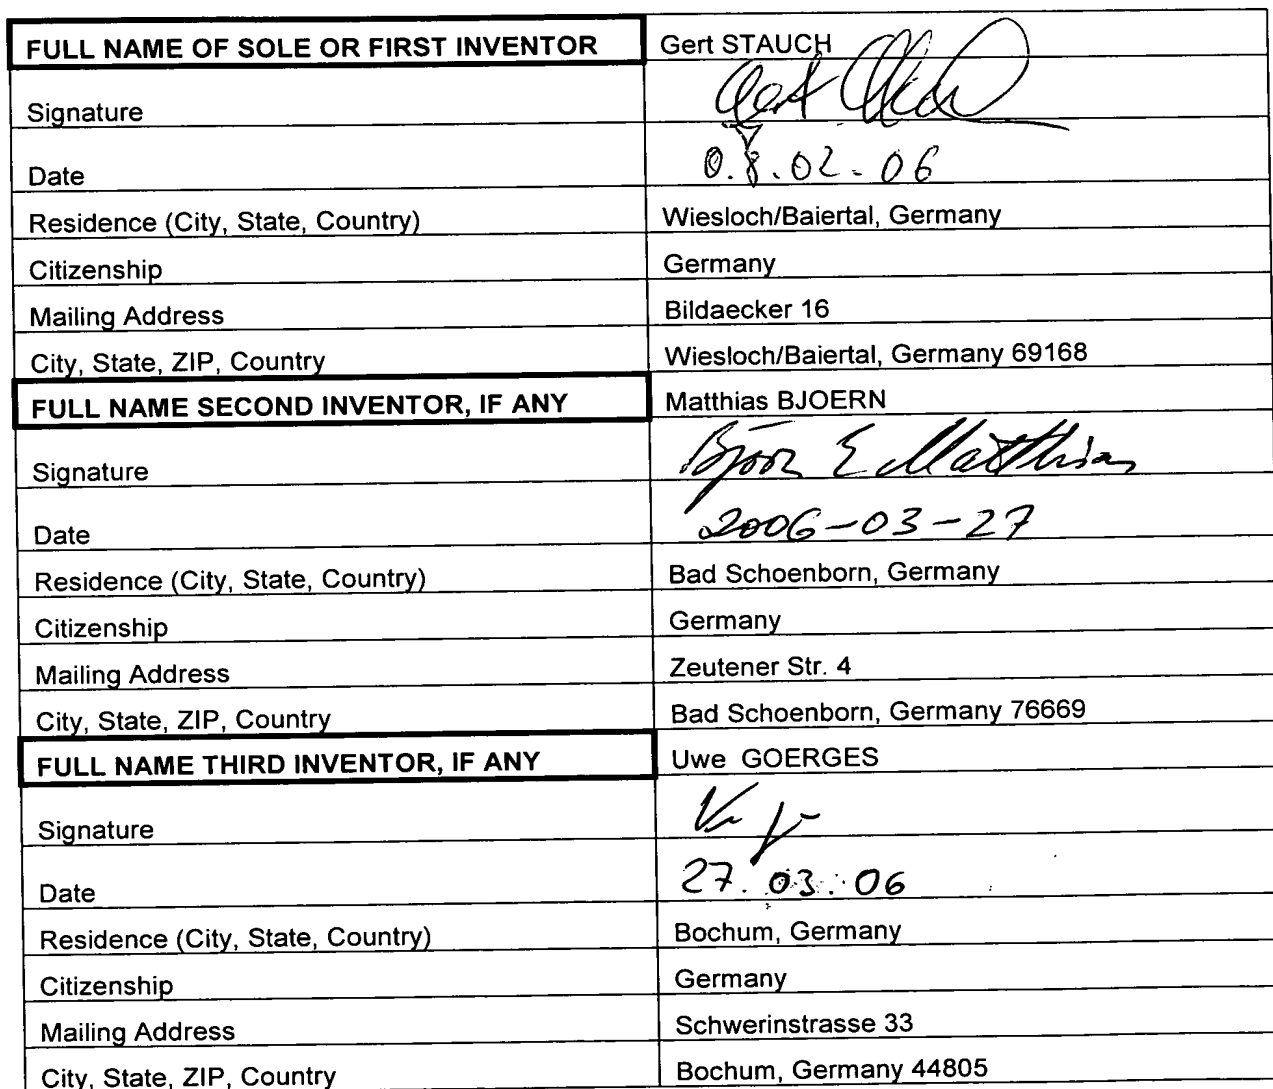 FULL NAME OF SOLE OR FIRST INVENTOR Gert STAUCH
Signature Gert
Date 08.02.06
Residence (City, State, Country) Wiesloch/Baiertal, Germany
Citizenship Germany
Mailing Address Bildaecker 16
City, State, ZIP, Country Wiesloch/Baiertal, Germany 69168
FULL NAME SECOND INVENTOR, IF ANY Matthias BJOERN
Signature Björn E Matthias
Date 2006-03-27
Residence (City, State, Country) Bad Schoenborn, Germany
Citizenship Germany
Mailing Address Zeutener Str. 4
City, State, ZIP, Country Bad Schoenborn, Germany 76669
FULL NAME THIRD INVENTOR, IF ANY Uwe GOERGES
Signature
Date 27.03.06
Residence (City, State, Country) Bochum, Germany
Citizenship Germany
Mailing Address Schwerinstrasse 33
City, State, ZIP, Country Bochum, Germany 44805